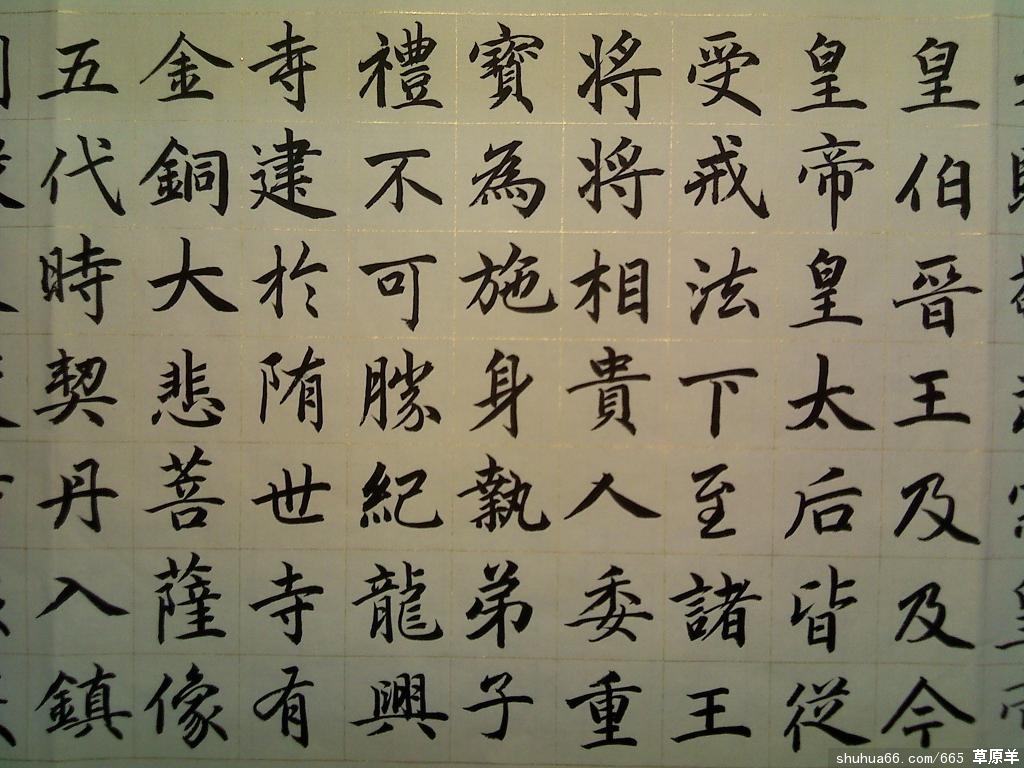 皇伯晋王及及今
皇帝皇太后皆從
受戒法下至諸王
将将相貴人委重
寳為施身執弟子
禮不可勝紀龍興
寺建於隋世寺有
金銅大悲菩薩像
五代時契丹入鎮
shuhua66.com/665 草原羊